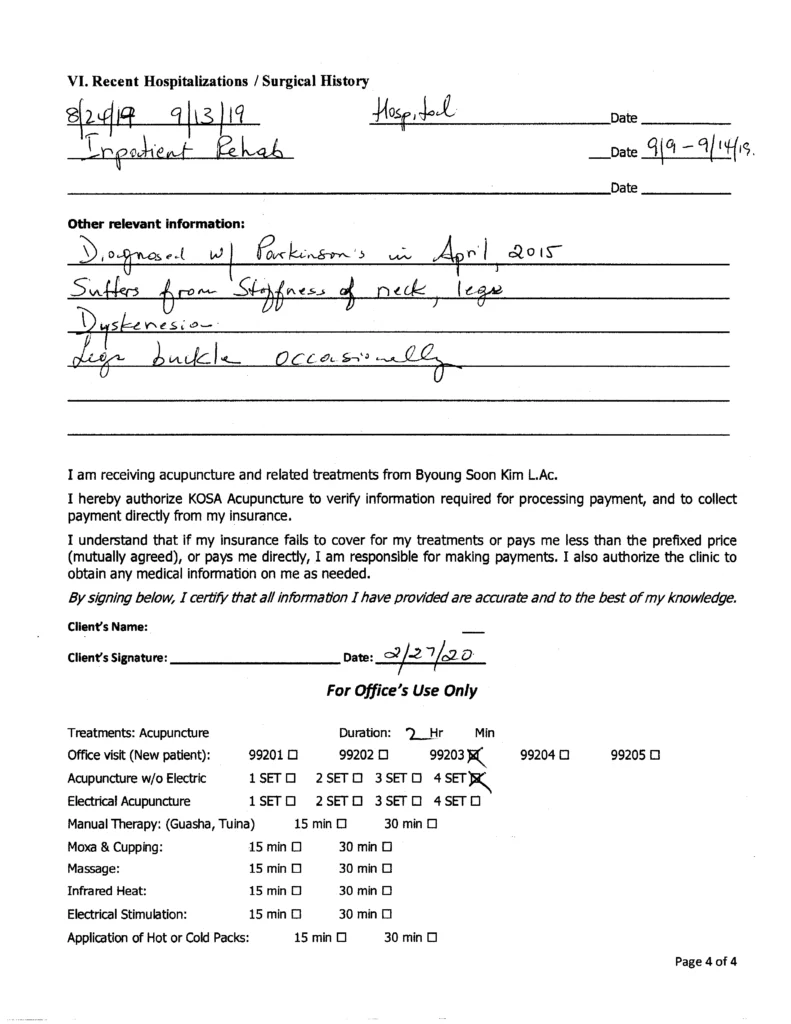 VI. Recent Hospitalizations / Surgical History
8/24/19 9/13/19 Hospital Date
Inpatient Rehab Date 9/9 - 9/14/19.
Date
Other relevant information:
Diagnosed w/ Parkinson's in April, 2015
Suffers from Stoffness of neck, legs
Dyskenesia
Legs buckle occasionally
I am receiving acupuncture and related treatments from Byoung Soon Kim L.Ac.
I hereby authorize KOSA Acupuncture to verify information required for processing payment, and to collect
payment directly from my insurance.
I understand that if my insurance fails to cover for my treatments or pays me less than the prefixed price
(mutually agreed), or pays me directly, I am responsible for making payments. I also authorize the clinic to
obtain any medical information on me as needed.
By signing below, I certify that all information I have provided are accurate and to the best of my knowledge.
Client's Name:
Client's Signature: Date: 2/27/20
For Office's Use Only
Treatments: Acupuncture Duration: 2 Hr Min
Office visit (New patient): 99201 ☐ 99202 ☐ 99203 ☒ 99204 ☐ 99205 ☐
Acupuncture w/o Electric 1 SET ☐ 2 SET ☐ 3 SET ☐ 4 SET ☒
Electrical Acupuncture 1 SET ☐ 2 SET ☐ 3 SET ☐ 4 SET ☐
Manual Therapy: (Guasha, Tuina) 15 min ☐ 30 min ☐
Moxa & Cupping: 15 min ☐ 30 min ☐
Massage: 15 min ☐ 30 min ☐
Infrared Heat: 15 min ☐ 30 min ☐
Electrical Stimulation: 15 min ☐ 30 min ☐
Application of Hot or Cold Packs: 15 min ☐ 30 min ☐
Page 4 of 4